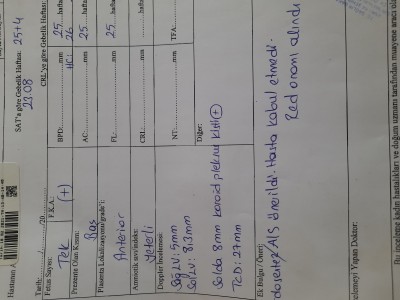 Hastanın A
SAT'a göre Gebelik Haftası: 25+4
22.08
Tarih: ....../....../20......
Fetus Sayısı: Tek
F.K.A.: (+)
Prezente Olan Kısım: Baş
Plasenta Lokalizasyonu/grade'i:
Anterior
Amniotik sıvı/indeks:
Yeterli
Doppler İncelemesi:
Sağ LV: 5mm
Sol LV: 8,3mm
Solda 8mm koroid pleksus kisti (+)
TCD: 27mm
CRL'ye göre Gebelik Haftası:
BPD: ......mm 25 hafta
HC: 26
AC: ......mm 25 hafta
FL: ......mm 25 hafta
CRL: ......mm ......hafta
NT: ......mm
TFA:
Diğer:
Ek Bulgu / Öneri:
önerildi. Hasta kabul etmedi.
Red onamı alındı
İncelemeyi Yapan Doktor:
Bu inceleme kadın hastalıkları ve doğum uzmanı tarafından muayene aracı olar